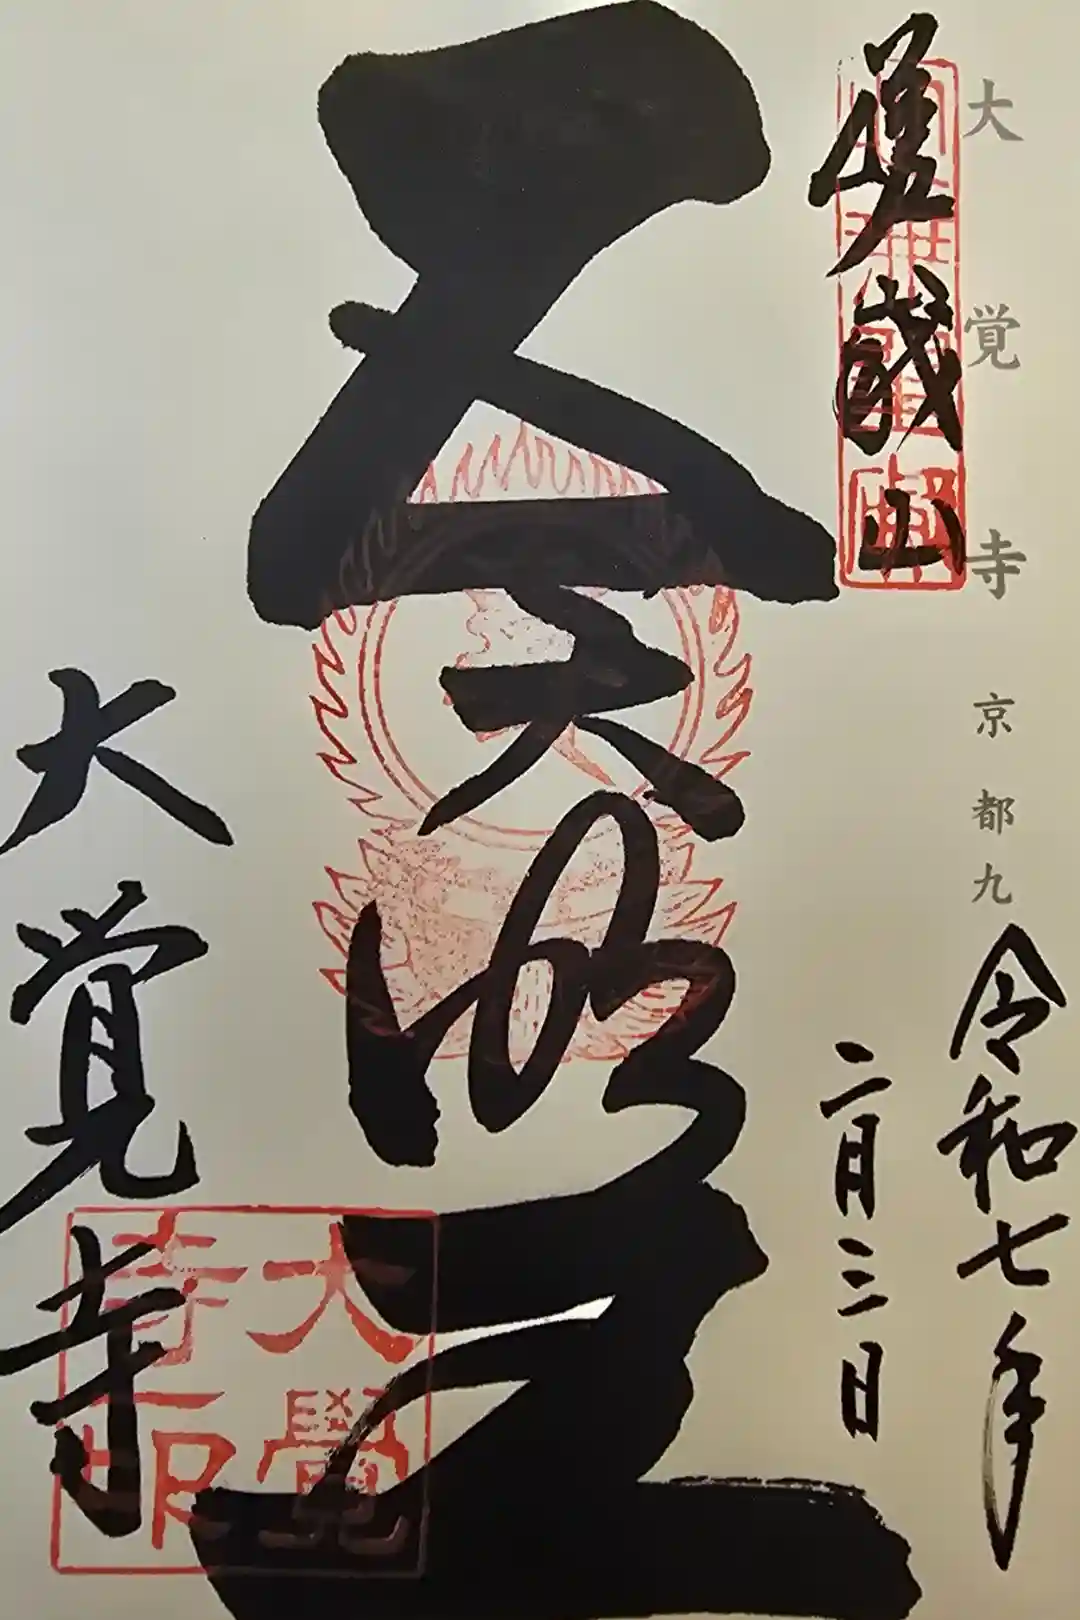 大覚寺 京都九
嵯峨山
令和七年
二月三日
五大明王
大覚寺
大覺
寺印